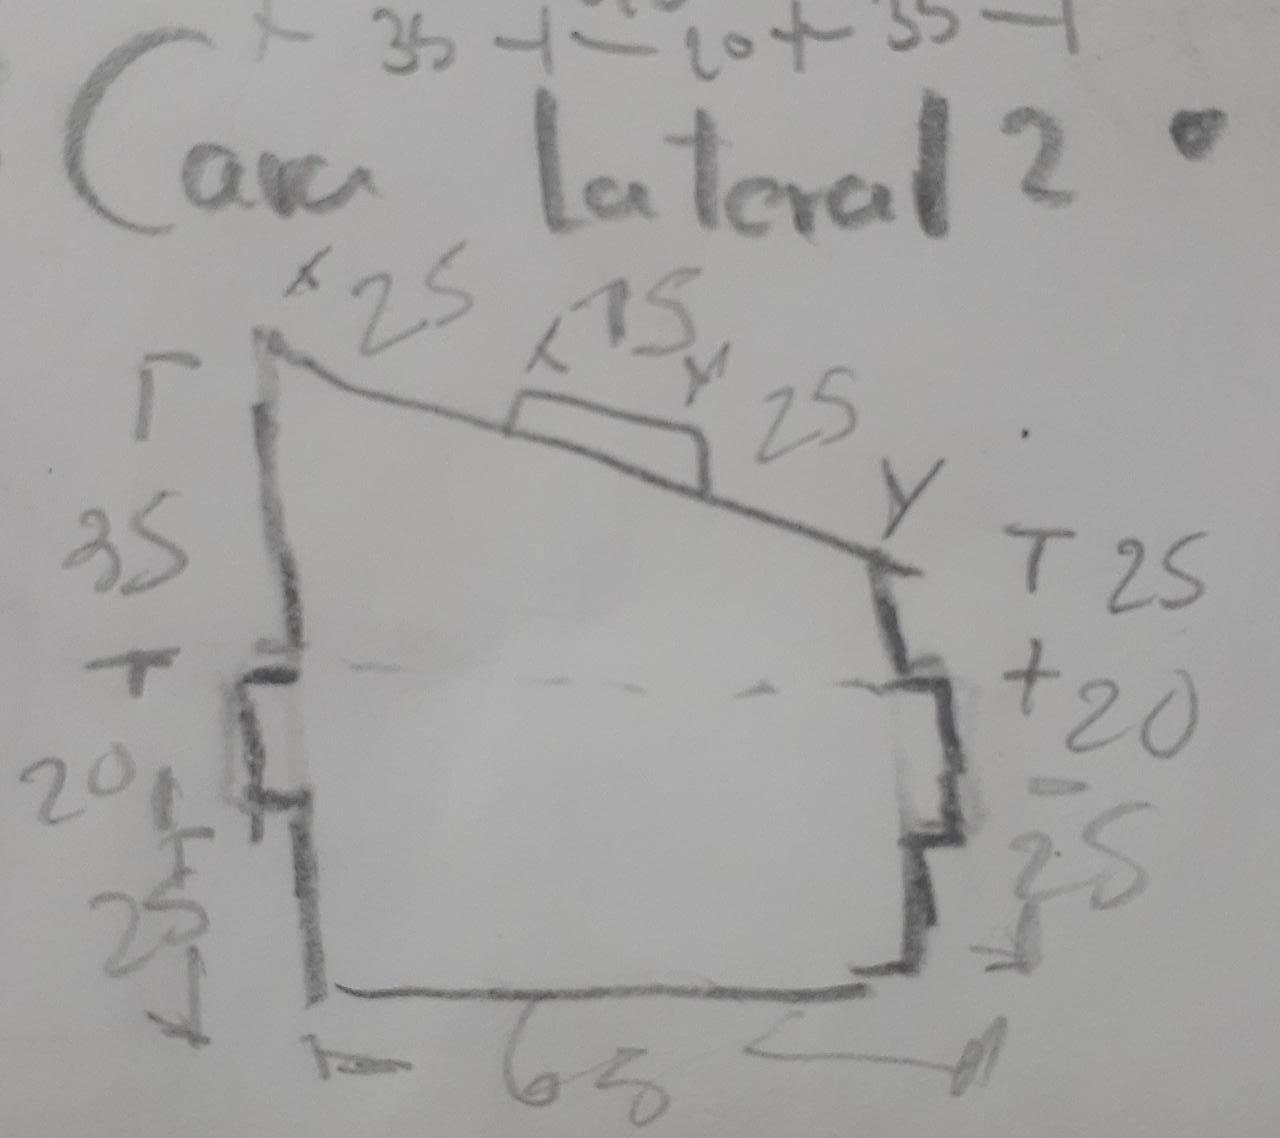 35 20 35
Cara lateral 2
x 25 x 15 y 25 y
35 25
20 20
25 25
65